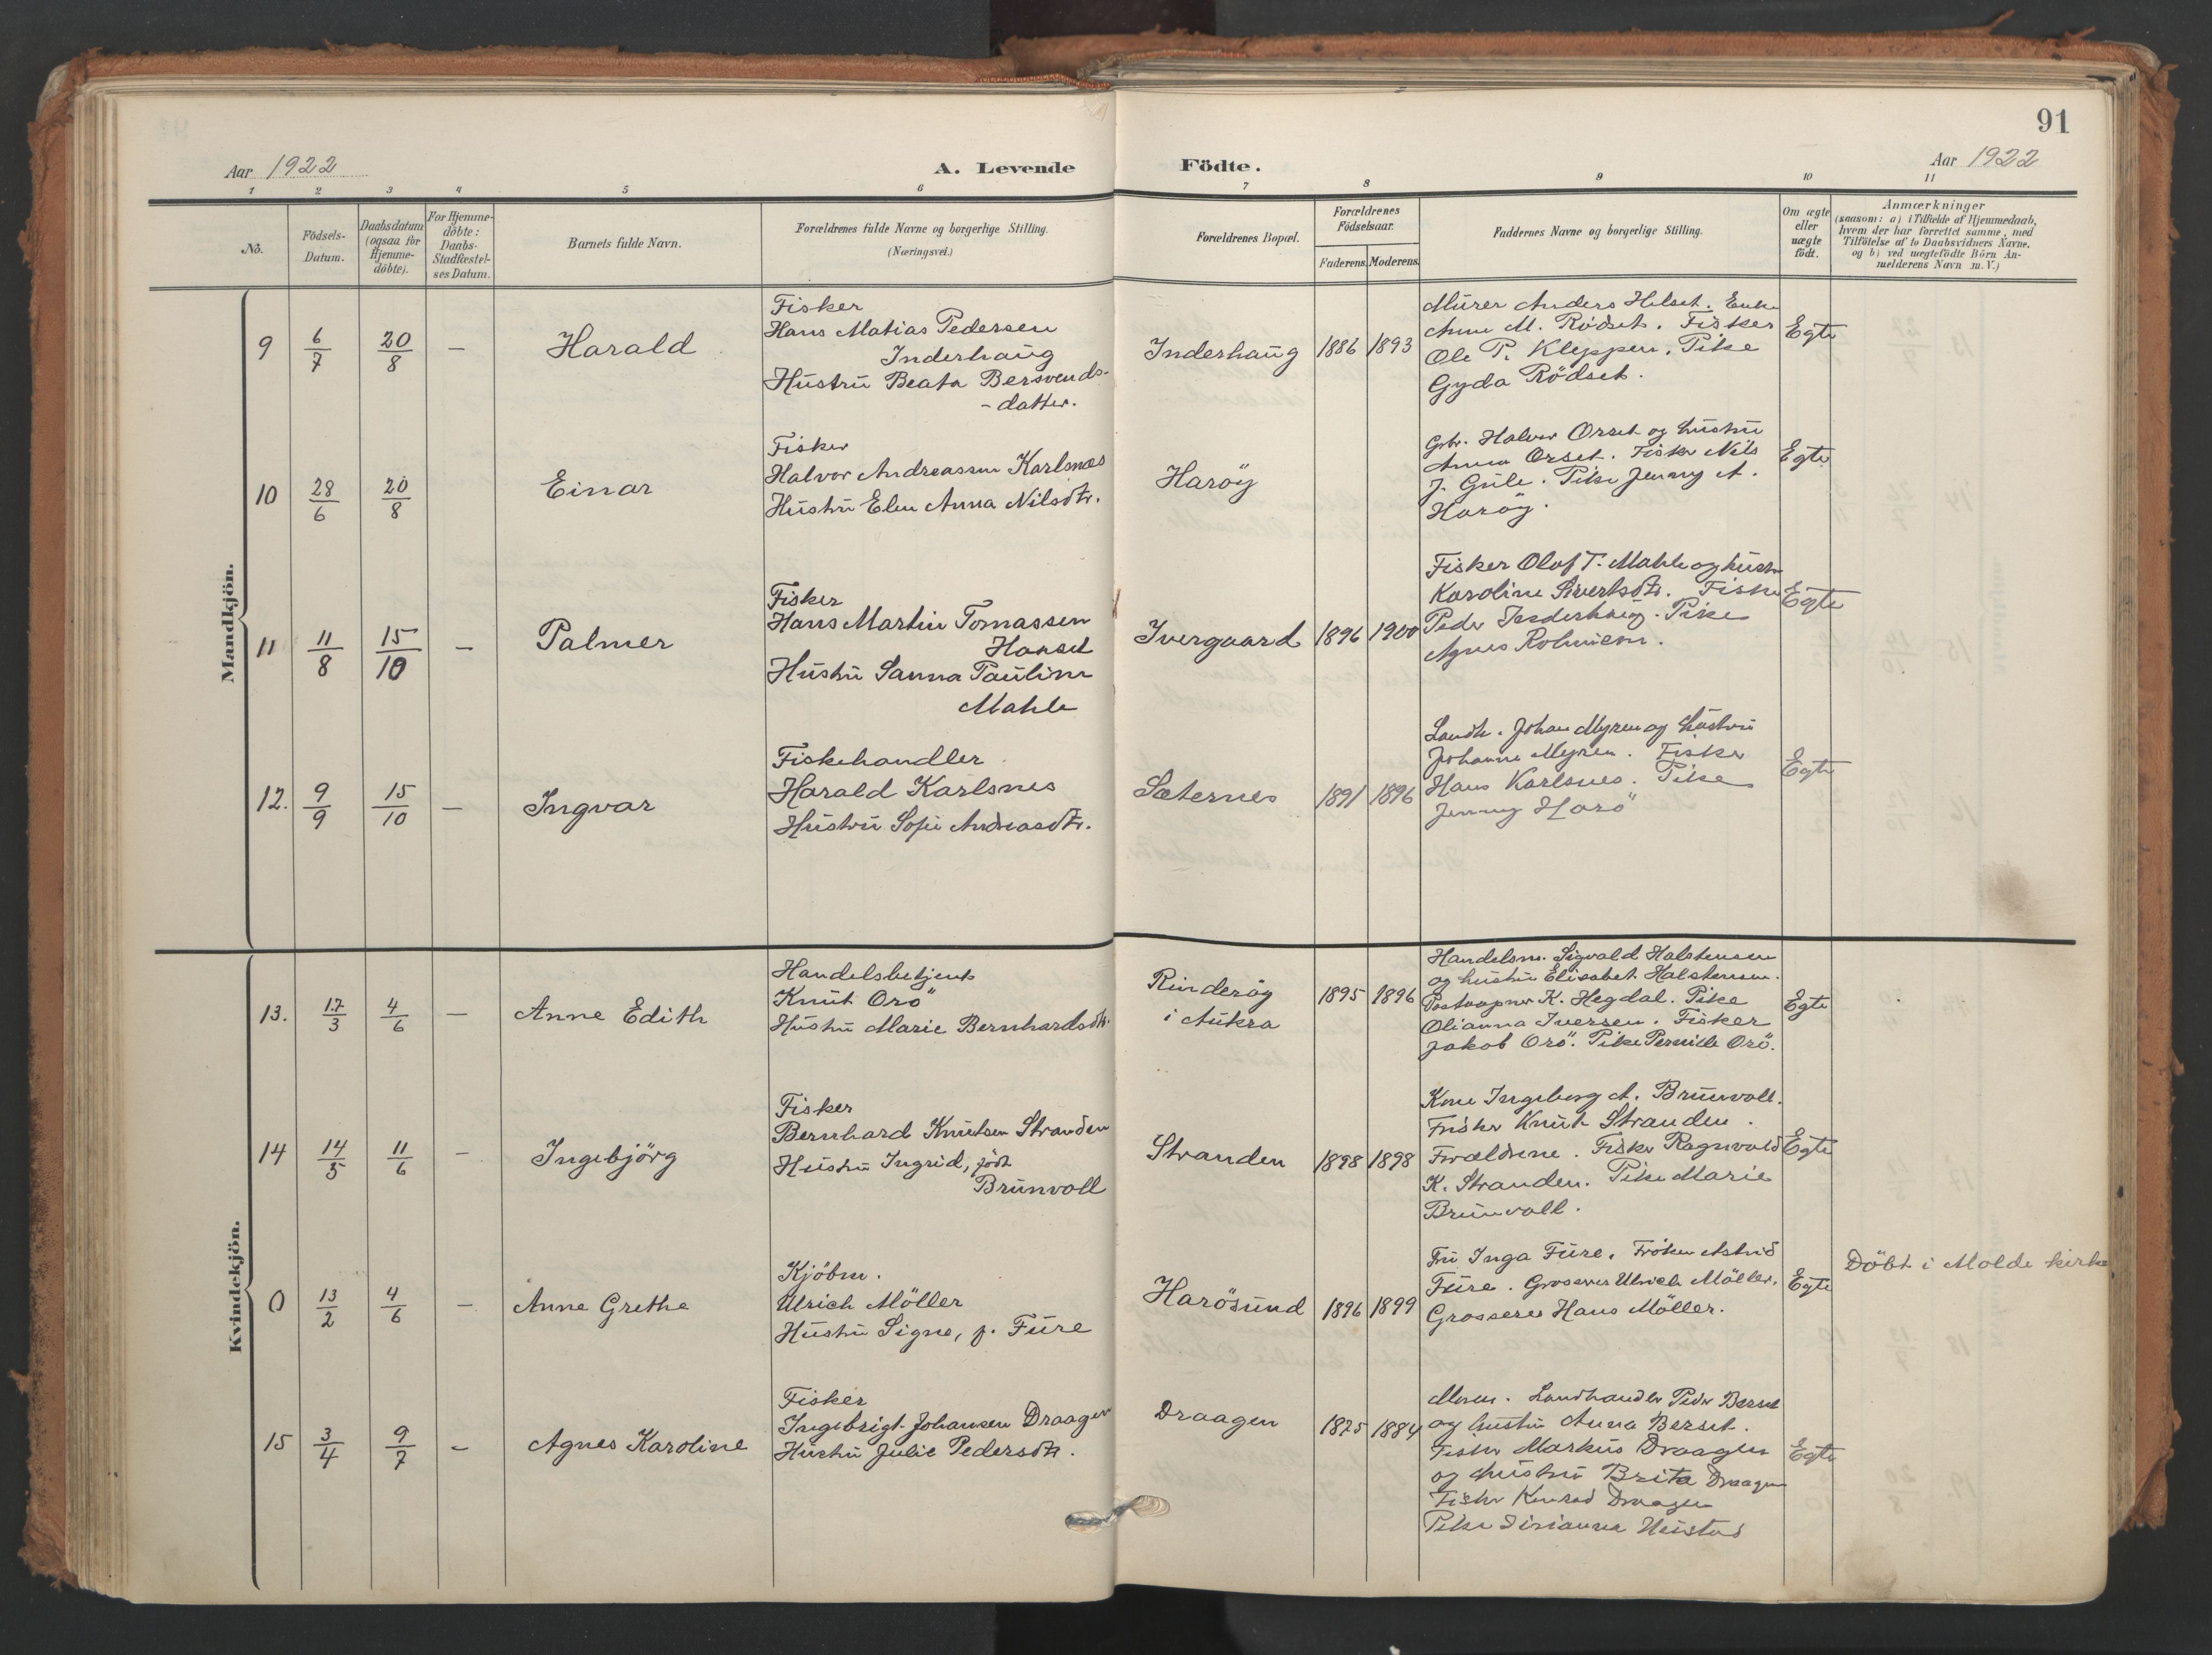 91
Aar 1922
A. Levende Födte.
Aar 1922
1 2 3 4 5 6 7 8 9 10 11
No.
Födsels-Datum.
Daabsdatum (ogsaa for Hjemme-döbte).
For Hjemme-döbte: Daabs-Stadfæstel-ses Datum.
Barnets fulde Navn.
Forældrenes fulde Navne og borgerlige Stilling.
(Næringsvei.)
Forældrenes Bopæl.
Forældrenes Födselsaar.
Faderens. Moderens.
Faddernes Navne og borgerlige Stilling.
Om ægte eller uægte födt.
Anmærkninger
(saasom: a) i Tilfælde af Hjemmedaab,
hvem der har forrettet samme, med
Tilföielse af to Daabsvidners Navne.
og b) ved uægtefödte Börn An-
melderens Navn m. V.)
Mandkjön.
9 6/7 20/8 — Harald
Fisker
Hans Matias Pedersen
Inderhaug
Hustru Beata Bersvends-
-datter.
Inderhaug 1886 1893
Murer Anders Helset. Enke
Anne M. Rödset. Fisker
Ole P. Kleppen. Pike
Gyda Rödset.
Egte
10 28/6 20/8 Einar
Fisker
Halvor Andreassen Karlsnes
Hustru Elen Anna Nilsdtr.
Haröy
Gbr. Halvor Orset og hustru
Anna Orset. Fisker Nils
J. Gule. Pike Jenny A.
Haröy.
Egte
11 11/8 15/10 — Palmer
Fisker
Hans Martin Tomassen
Hanset
Hustru Sanna Pauline
Mahle
Ivergaard 1896 1900
Fisker Olof T. Mahle og hustru
Karoline Sivertsdtr. Fisker
Peder Inderhaug. Pike
Agnes
Egte
12. 9/9 15/10 — Ingvar
Fiskehandler
Harald Karlsnes
Hustru Sofie Andreasdtr.
Sæternes 1891 1896
Landh. Johan Myren og hustru
Johanne Myren. Fisker
Hans Karlsnes. Pike
Jenny Harö
Egte
Kvindekjön.
13. 17/3 4/6 — Anne Edith
Handelsbetjent
Knut Orö
Hustru Marie Bernhardsdtr.
Rinderöy
i Aukra
1895 1896
Handelsm. Sigvald Halstensen
og hustru Elisabet Halstensen.
Postaapner K. Hegdal. Pike
Olianna Iversen. Fisker
Jakob Orö. Pike Pernille Orö.
Egte
14 14/5 11/6 — Ingebjörg
Fisker
Bernhard Knutsen Stranden
Hustru Ingrid, född
Brunvoll
Stranden 1898 1898
Kone Ingeborg A. Brunvoll.
Fisker Knut Stranden.
Forældrene. Fisker Ragnvald
K. Stranden. Pike Marie
Brunvoll.
Egte
0 13/2 4/6 — Anne Grethe
Kjöbm.
Ulrich Möller
Hustru Signe, f. Füre
Harösund 1896 1899
Fru Inga Füre. Fröken Astrid
Füre. Grosserer Ulrich Möller.
Grosserer Hans Möller.
Egte
Döbt i Molde kirke
15 3/4 9/7 — Agnes Karoline
Fisker
Ingebrigt Johansen Draagen
Hustru Julie Pedersdtr.
Draagen 1875 1884
Moren. Landhandler Peder Berset
og hustru Anna Berset.
Fisker Markus Draagen
og hustru Brita Draagen
Fisker Konrad Draagen
Pike
Egte